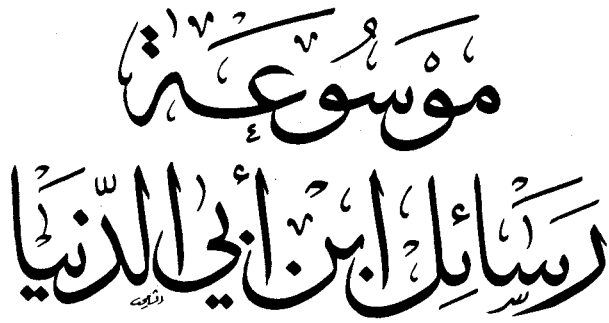 مَوْسُوعَة
رَسَائِل ابْن أبي الدّنيَا